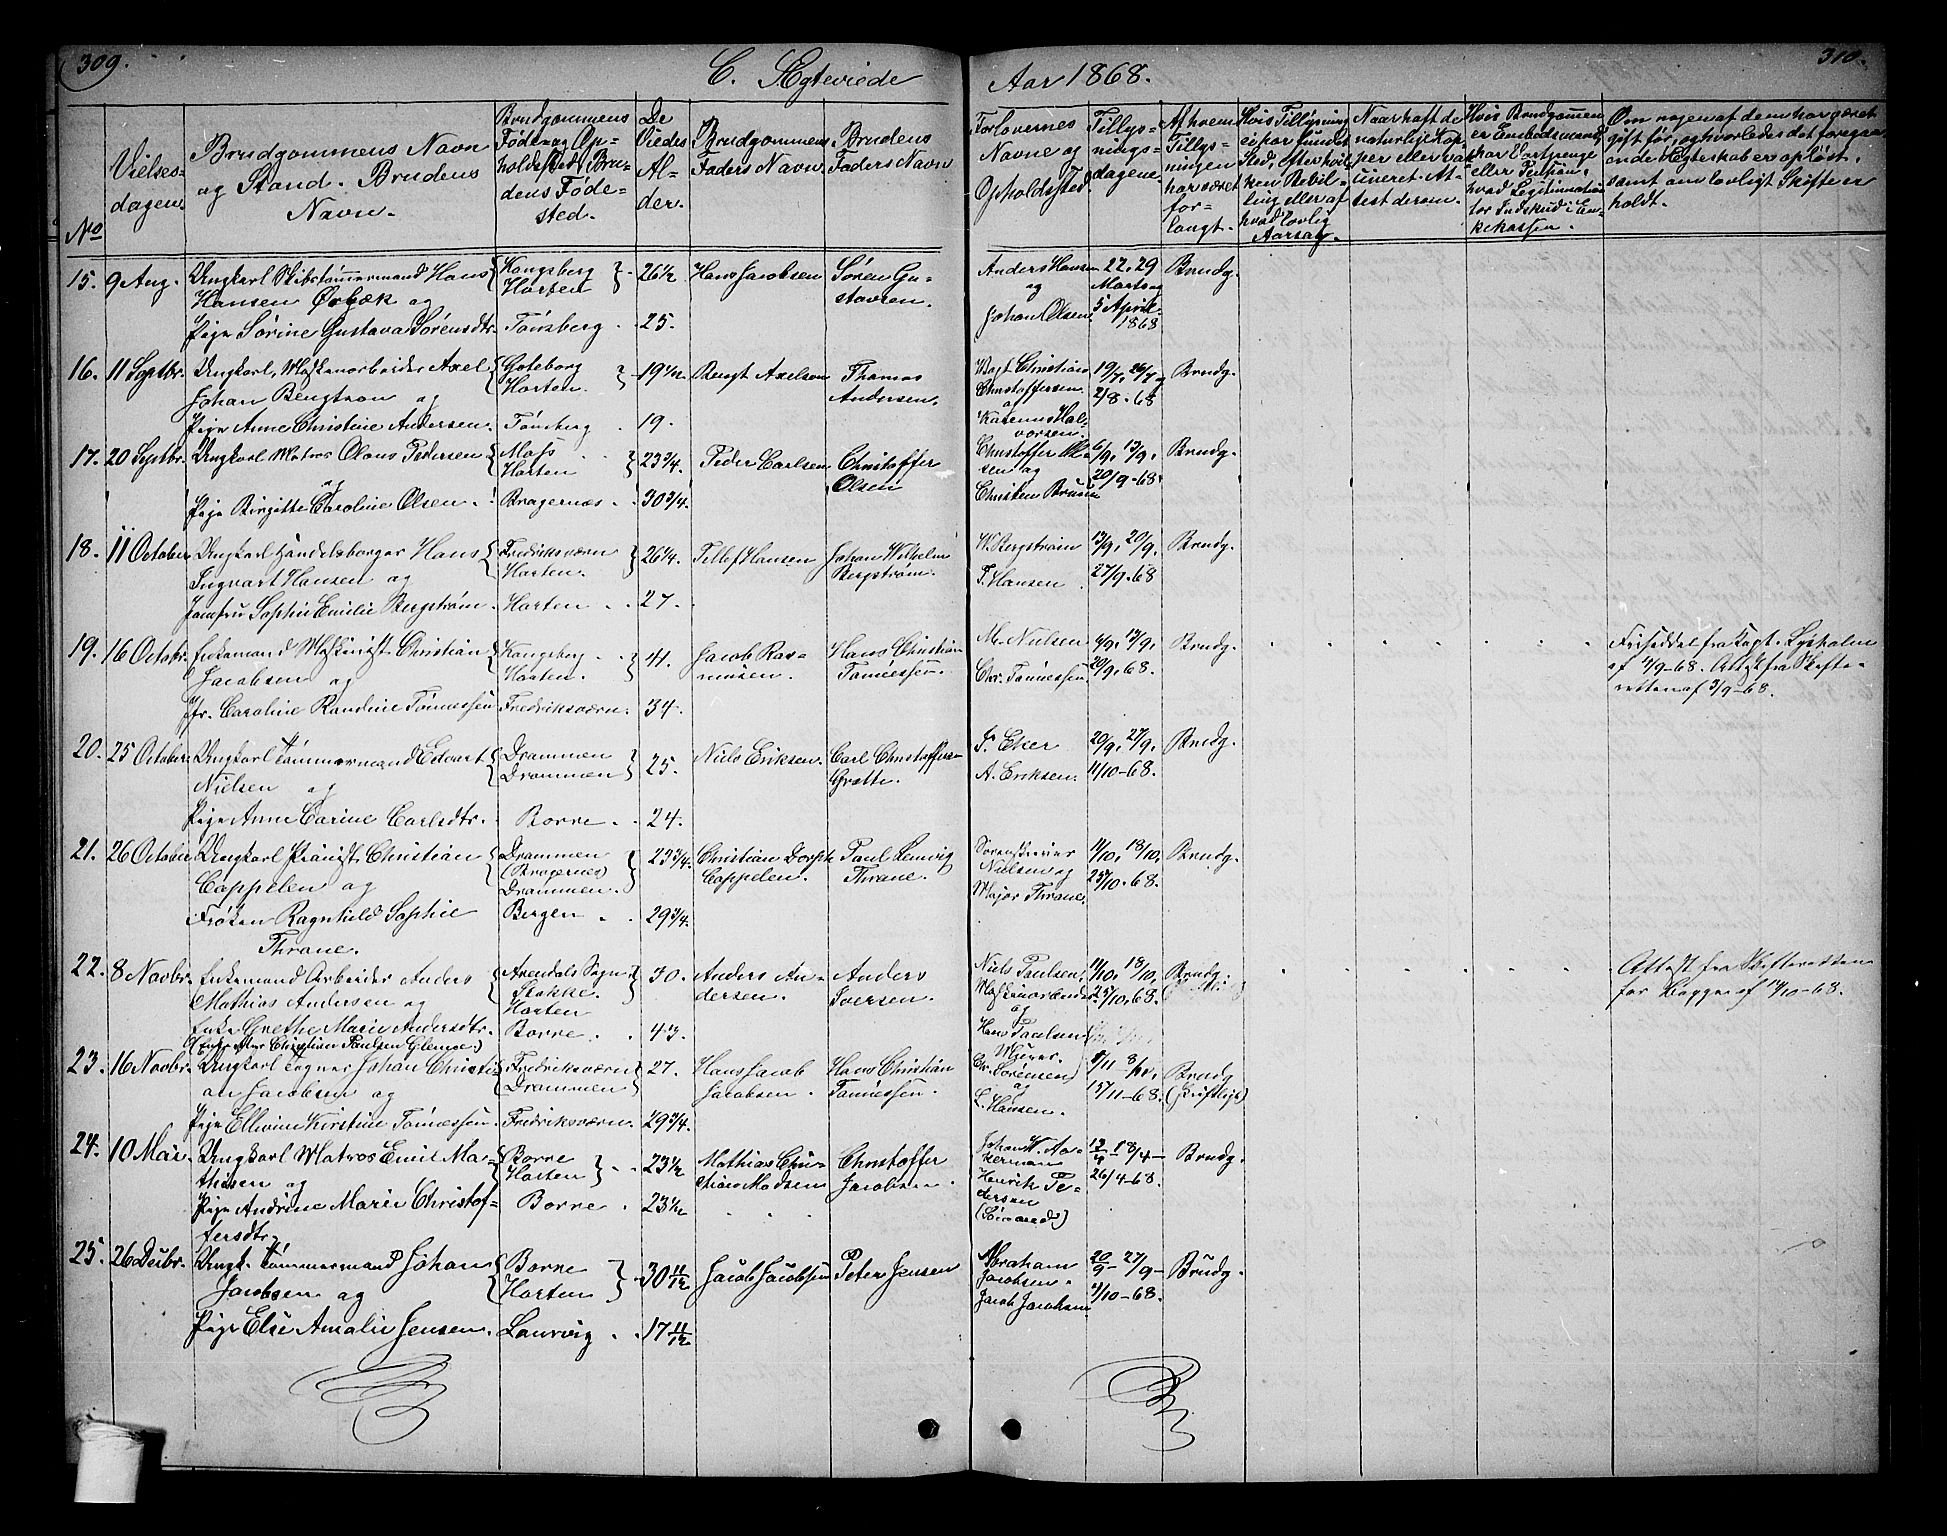 309.
C. Ægteviede
Aar 1868.
310.
No
Vielses-
dagen
Brudgommens Navn
og Stand. Brudens
Navn.
Brudgommens
Føde- og Op-
holdssted, Bru-
dens Føde-
sted.
De
Viedes
Al-
der.
Brudgommens
Faders Navn
Brudens
Faders Navn
Forlovernes
Navne og
Opholdssted
Tillys-
nings-
dagene.
Af hvem
Tillys-
ningen
har været
for-
langt.
Hvis Tillysning
ei har fundet
Sted, efter hvil-
ken Bevil-
ling eller af
hvad lovlig
Aarsag.
Naar havt de
naturlige Kop-
per eller vac-
cineret At-
test derom.
Hvis Brudgommen
er Embedsmand,
har Vartpenge
eller Pension,
hvad Legitimation
for Indskud i En-
kekassen.
Om nogen af dem har været
gift før, og hvorledes det foregaa-
ende Ægteskab er opløst,
samt om lovligt Skifte er
holdt.
15. 9 Aug. Ungkarl Skibstømmermand Hans
Hansen Ørbæk og
Pige Sørine Gustava Sørensdtr.
Kongsberg
Horten
Tønsberg
26 1/2
25.
Hans Jacobsen
Søren Gu-
stavsen.
Anders Hansen
og
Johan Olsen
22. 29
Marts og
5 April
1868
Brudg.
16. 11 Septbr. Ungkarl, Maskinarbeider Axel
Johan Bengtson og
Pige Anne Christine Andersen.
Gøteborg
Horten.
Tønsberg
19 1/2
19.
Bengt Axelson
Thomas
Andersen.
Christian
Christoffersen
og
Hal-
vorsen.
19/7, 26/7 og
2/8 - 68
Brudg.
17. 20 Septbr. Ungkarl Matros Olaus Pedersen
og
Pige Birgitte Caroline Olsen.
Moss
Horten
Bragernæs
23 3/4.
30 3/4.
Peder Carlsen
Christoffer
Olsen
Christoffer Ol-
sen og
Christen Bruun
6/9, 13/9,
20/9 - 68.
Brudg.
18. 11 October Ungkarl Handelsborger Hans
Ingvart Hansen og
Jomfru Sophie Emilie Bergstrøm.
Fredriksværn
Horten.
Horten
26 1/4.
27.
Tellef Hansen
Johan Wilhelm
Bergstrøm.
W. Bergstrøm
T. Hansen
13/9, 20/9.
27/9. 68
Brudg.
19. 16 Octobr. Enkemand Maskinist Christian
Jacobsen og
Jfr. Caroline Randine Tønnessen
Kongsberg
Horten.
Fredriksværn.
41.
34.
Jacob Ras-
mussen.
Hans Christian
Tønnessen.
M. Nielsen
Chr. Tønnessen
6/9, 13/9,
20/9, 68.
Brudg.
Friseddel fra Capt. Lysholm
af 4/9-68. Attest fra Skifte-
retten af 3/9-68.
20. 25 October Ungkarl Tømmermand Edvart
Nielsen og
Pige Anne Carine Carlsdtr.
Drammen
Drammen
Borre
25.
24.
Niels Eriksen.
Carl Christoffers-
Grøtte.
F. Eker
A. Eriksen.
20/9, 27/9,
11/10 - 68.
Brudg.
21. 26 October Ungkarl Pianist Christian
Cappelen og
Frøken Ragnhild Sophie
Thrane.
Drammen
(Bragernæs)
Drammen.
Bergen
23 3/4.
29 3/4.
Christian Dorph
Cappelen.
Paul Lemvig
Thrane.
Sorenskriver
Nielsen og
Major Thrane.
11/10, 18/10,
25/10 - 68.
Brudg.
22. 8 Novbr. Enkemand Arbeider Anders
Mathias Andersen og
Enke Grethe Marie Andersdtr.
(Enke efter Christian Paulsen Glenne.)
Arendals Sogn
Stokke.
Horten
Borre
30.
43.
Anders An-
dersen.
Anders
Iversen.
Niels Paulsen,
og
Hans Paulsen
11/10, 18/10,
25/10, 68.
Brudg.
Attest fra Skifteretten
for Begge af 14/10-68.
23. 16 Novbr. Ungkarl Tegner Johan Christi-
an Jacobsen og
Pige Ellevine Kirstine Tønnessen
Fredriksværn
Drammen
Fredriksværn.
27.
29 3/4.
Hans Jacob
Jacobsen.
Hans Christian
Tønnessen.
Chr. Sørensen
og
L. Hansen.
1/11 8/11,
15/11 - 68.
Brudg
(Skriftlige)
24. 10 Mai. Ungkarl Matros Emil Ma-
thisen og
Pige Andrine Marie Christof-
fersdtr.
Borre
Horten
Borre
23 1/2
23 1/2
Mathias Chri-
stian Madsen
Christoffer
Jacobsen
Johan W. Aa-
kerman
Henrik Pe-
dersen
12/4 - 18/4 -
26/4 - 68.
Brudg.
25. 26 Decbr. Ungk. Tømmermand Johan
Jacobsen og
Pige Else Amalie Jensen.
Borre
Horten
Laurvig
30 11/12
17 11/12
Jacob Jacobsen
Peter Jensen
Abraham
Jacobsen.
Jacob Jacobsen
20/9 - 27/9 -
4/10 - 68.
Brudg.